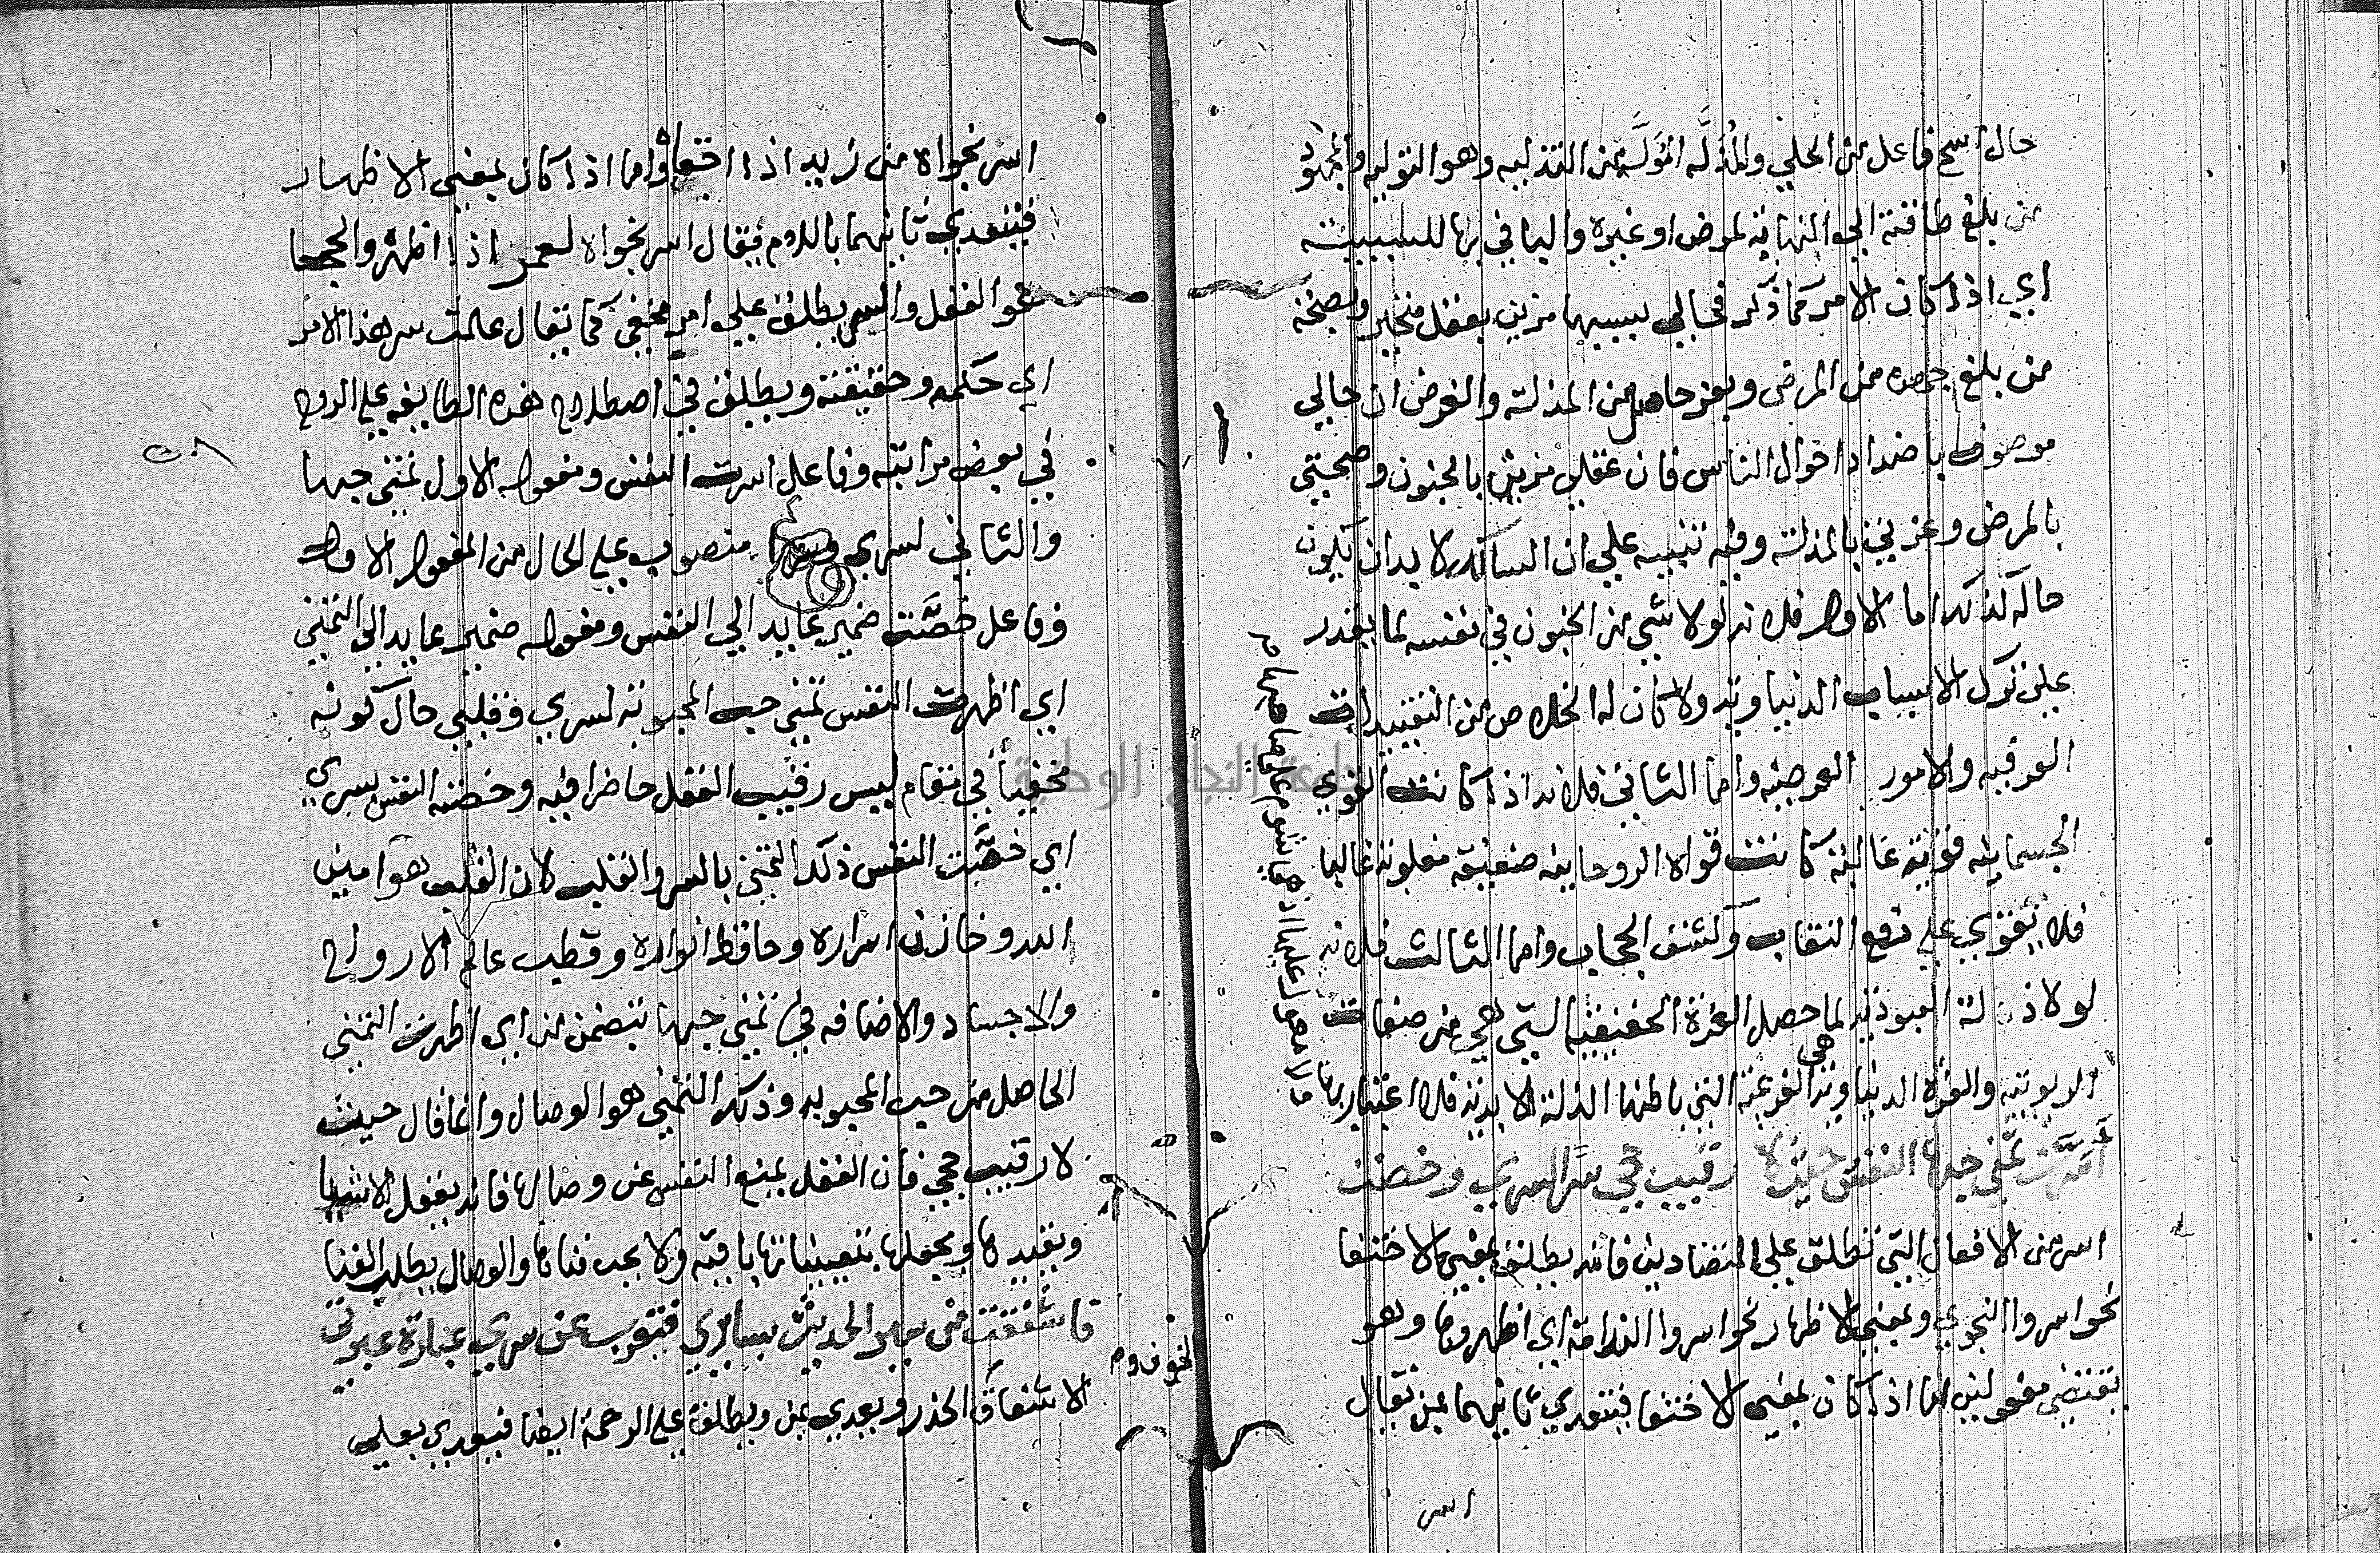 حال اسم فاعل من الحلي والمذلّه المولّه من التذليه وهو التوليه والمجهود
من بلغ طاقته الي النهايه لمرض او غيره والبا في بها للسببيته
اي اذا كان الامر كما ذكر فحالي بسببها مزين بعقل مخبر وبصحة
من بلغ جهده من المرض وبعز حاصل من المذلة والغرض ان حالي
موصوف باضداد احوال الناس فان عقلي مزين بالجنون وصحبتي
بالمرض وعزتي بالمذلة وفيه تنبيه علي ان السالك لا بد ان يكون
حاله كذلك اما الاول فلانه لولا شي من الجنون في نفسه لما يقدر
علي ترك الاسباب الدنياويه ولا كان له الخلاص من التقييدات
العرفيه والامور العرضيه واما الثاني فلانه اذا كانت القوي
الجسمانيه قويه غالبة كانت قواه الروحانيه ضعيفة مغلوبه غالبا
فلا يقوي علي رفع النقاب وكشف الحجاب واما الثالث فلانه
لولا ذلة العبوديه لما حصل العزة الحقيقيه التي هي من صفات
الربوبيه والعزه الدنياويه هي الفرعية التي باطنها الذلة الابديه فلا اعتبار بها
اسرّت تمني حبها النفس حيث لا رقيب حجي سرّا لسري وخصّت
اسر من الافعال التي تطلق علي المتضادين فانه يطلق بمعني الاختفا
نحو اسروا النجوي وبمعني الاظهار نحو اسروا الندامة اي اظهروها وهو
يقتضي مفعولين اما اذا كان بمعني الاختفا فيتعدي ثانيهما بمن يقال
اسر
اسر نجواه من زيد اذا اختفاه واما اذا كان بمعني الاظهار
فيتعدي ثانيهما باللام فيقال اسر نجواه لعمر اذا اظهره والحجا
هو العقل والسر يطلق علي امر مخفي كما يقال علمت سر هذا الامر
اي حكمه وحقيقته ويطلق في اصطلاح هذه الطايفه علي الروح
في بعض مراتبه وفاعل اسرت النفس ومفعوله الاول تمني حبها
والثاني لسري وسرا منصوب علي الحال من المفعول الاول
وفاعل خصّت ضمير عايد الي النفس ومفعوله ضمير عايد الي التمني
اي اظهرت النفس تمني حب المحبوبه لسري وقلبي حال كونه
مخفيا في مقام ليس رقيب العقل حاضرا فيه وخصته النفس بسري
اي خصّت النفس ذلك التمني بالسر والقلب لان القلب هو امين
الله وخازن اسراره وحافظ انواره وقطب عالم الارواح
والاجساد والاضافه في تمني حبها بتضمن من اي اظهرت التمني
الحاصل من حب المحبوبه وذلك التمني هو الوصال وانما قال حيث
لا رقيب حجي فان العقل يمنع النفس عن وصالها فانه يعقل الاشيا
ويقيدها ويجعلها بتعييناتها باقيه ولا يحب فناها والوصال يطلب الفنا
فاشفقت من سير الحديث بسايري فتعرب عن سري عبارة عبرتي
الاشفاق الحذر ويعدي بمن ويطلق علي الرحمة ايضا فيعدي بعلي